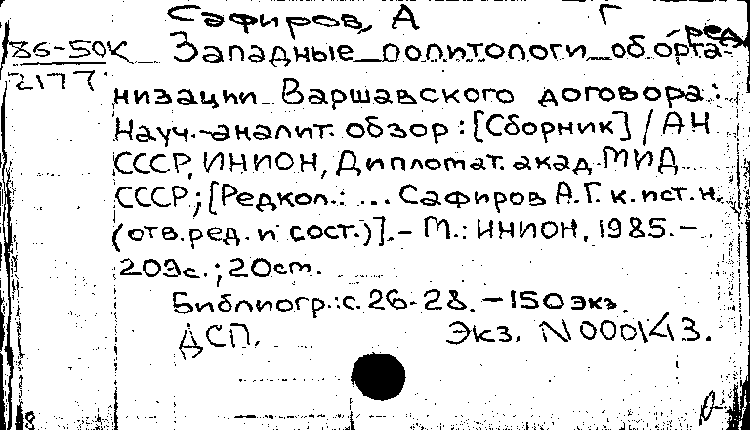 Сафиров, А Г
ред.
86-50К Западные политологи об орга-
2177
низации Варшавского договора:
Науч.-аналит. обзор: [Сборник] / АН
СССР, ИНИОН, Дипломат. акад. МИД
СССР; [Редкол.: ... Сафиров А.Г. к.ист.н.
(отв.ред. и сост.)].- М.: ИНИОН, 1985.-
209с.; 20cm.
Библиогр.: с. 26-28. - 150 экз.
ДСП. Экз. N 000143.